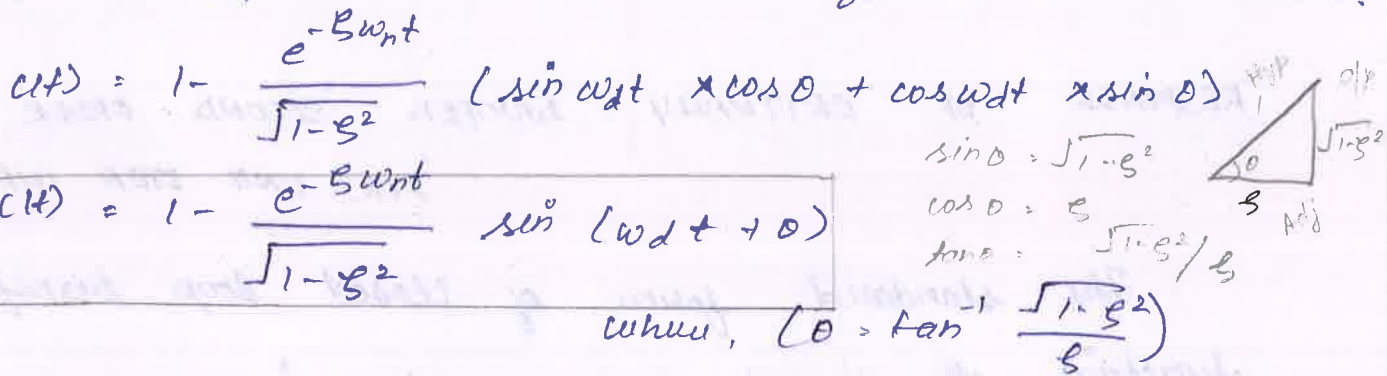 c(t) = 1 - e^{-ξω_n t} / √(1-ξ²) (sin ω_d t × cos θ + cos ω_d t × sin θ)
hyp
1
o/p
√(1-ξ²)
θ
ξ
Adj
sin θ = √(1-ξ²)
cos θ = ξ
tan θ = √(1-ξ²)/ξ
c(t) = 1 - e^{-ξω_n t} / √(1-ξ²) sin (ω_d t + θ)
where, (θ = tan⁻¹ √(1-ξ²) / ξ)